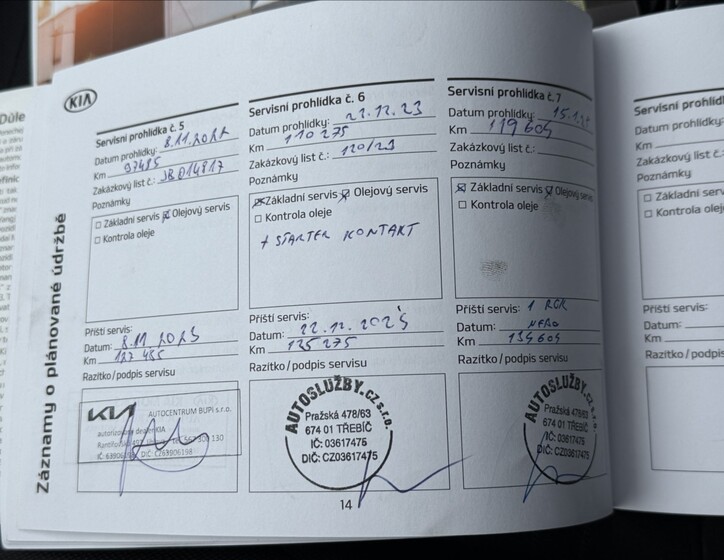 KIA
Záznamy o plánované údržbě
Servisní prohlídka č. 5
Datum prohlídky: 8.11.2022
Km 97485
Zakázkový list č.: JB014817
Poznámky
Základní servis Olejový servis
Kontrola oleje
Příští servis:
Datum: 8.11 2023
Km 127 485
Razítko/podpis servisu
KIA AUTOCENTRUM BUPI s.r.o.
autorizovaný dealer KIA
Servisní prohlídka č. 6
Datum prohlídky: 22.12.23
Km 110 275
Zakázkový list č.: 120/23
Poznámky
Základní servis Olejový servis
Kontrola oleje
+ STARTER KONTAKT
Příští servis:
Datum: 22.12.2025
Km 125 275
Razítko/podpis servisu
AUTOSLUŽBY.CZ s.r.o.
Pražská 478/63
674 01 TŘEBÍČ
IČ: 03617475
DIČ: CZ03617475
Servisní prohlídka č. 7
Datum prohlídky: 15.1.
Km 119 604
Zakázkový list č.:
Poznámky
Základní servis Olejový servis
Kontrola oleje
Příští servis: 1 ROK
Datum: NEBO
Km 134 604
Razítko/podpis servisu
AUTOSLUŽBY.CZ s.r.o.
Pražská 478/63
674 01 TŘEBÍČ
IČ: 03617475
DIČ: CZ03617475
Servisní
Datum prohlídky:
Km
Zakázkový list č.:
Poznámky
Základní servis
Kontrola oleje
Příští servis:
Datum:
Km
Razítko/podpis
14